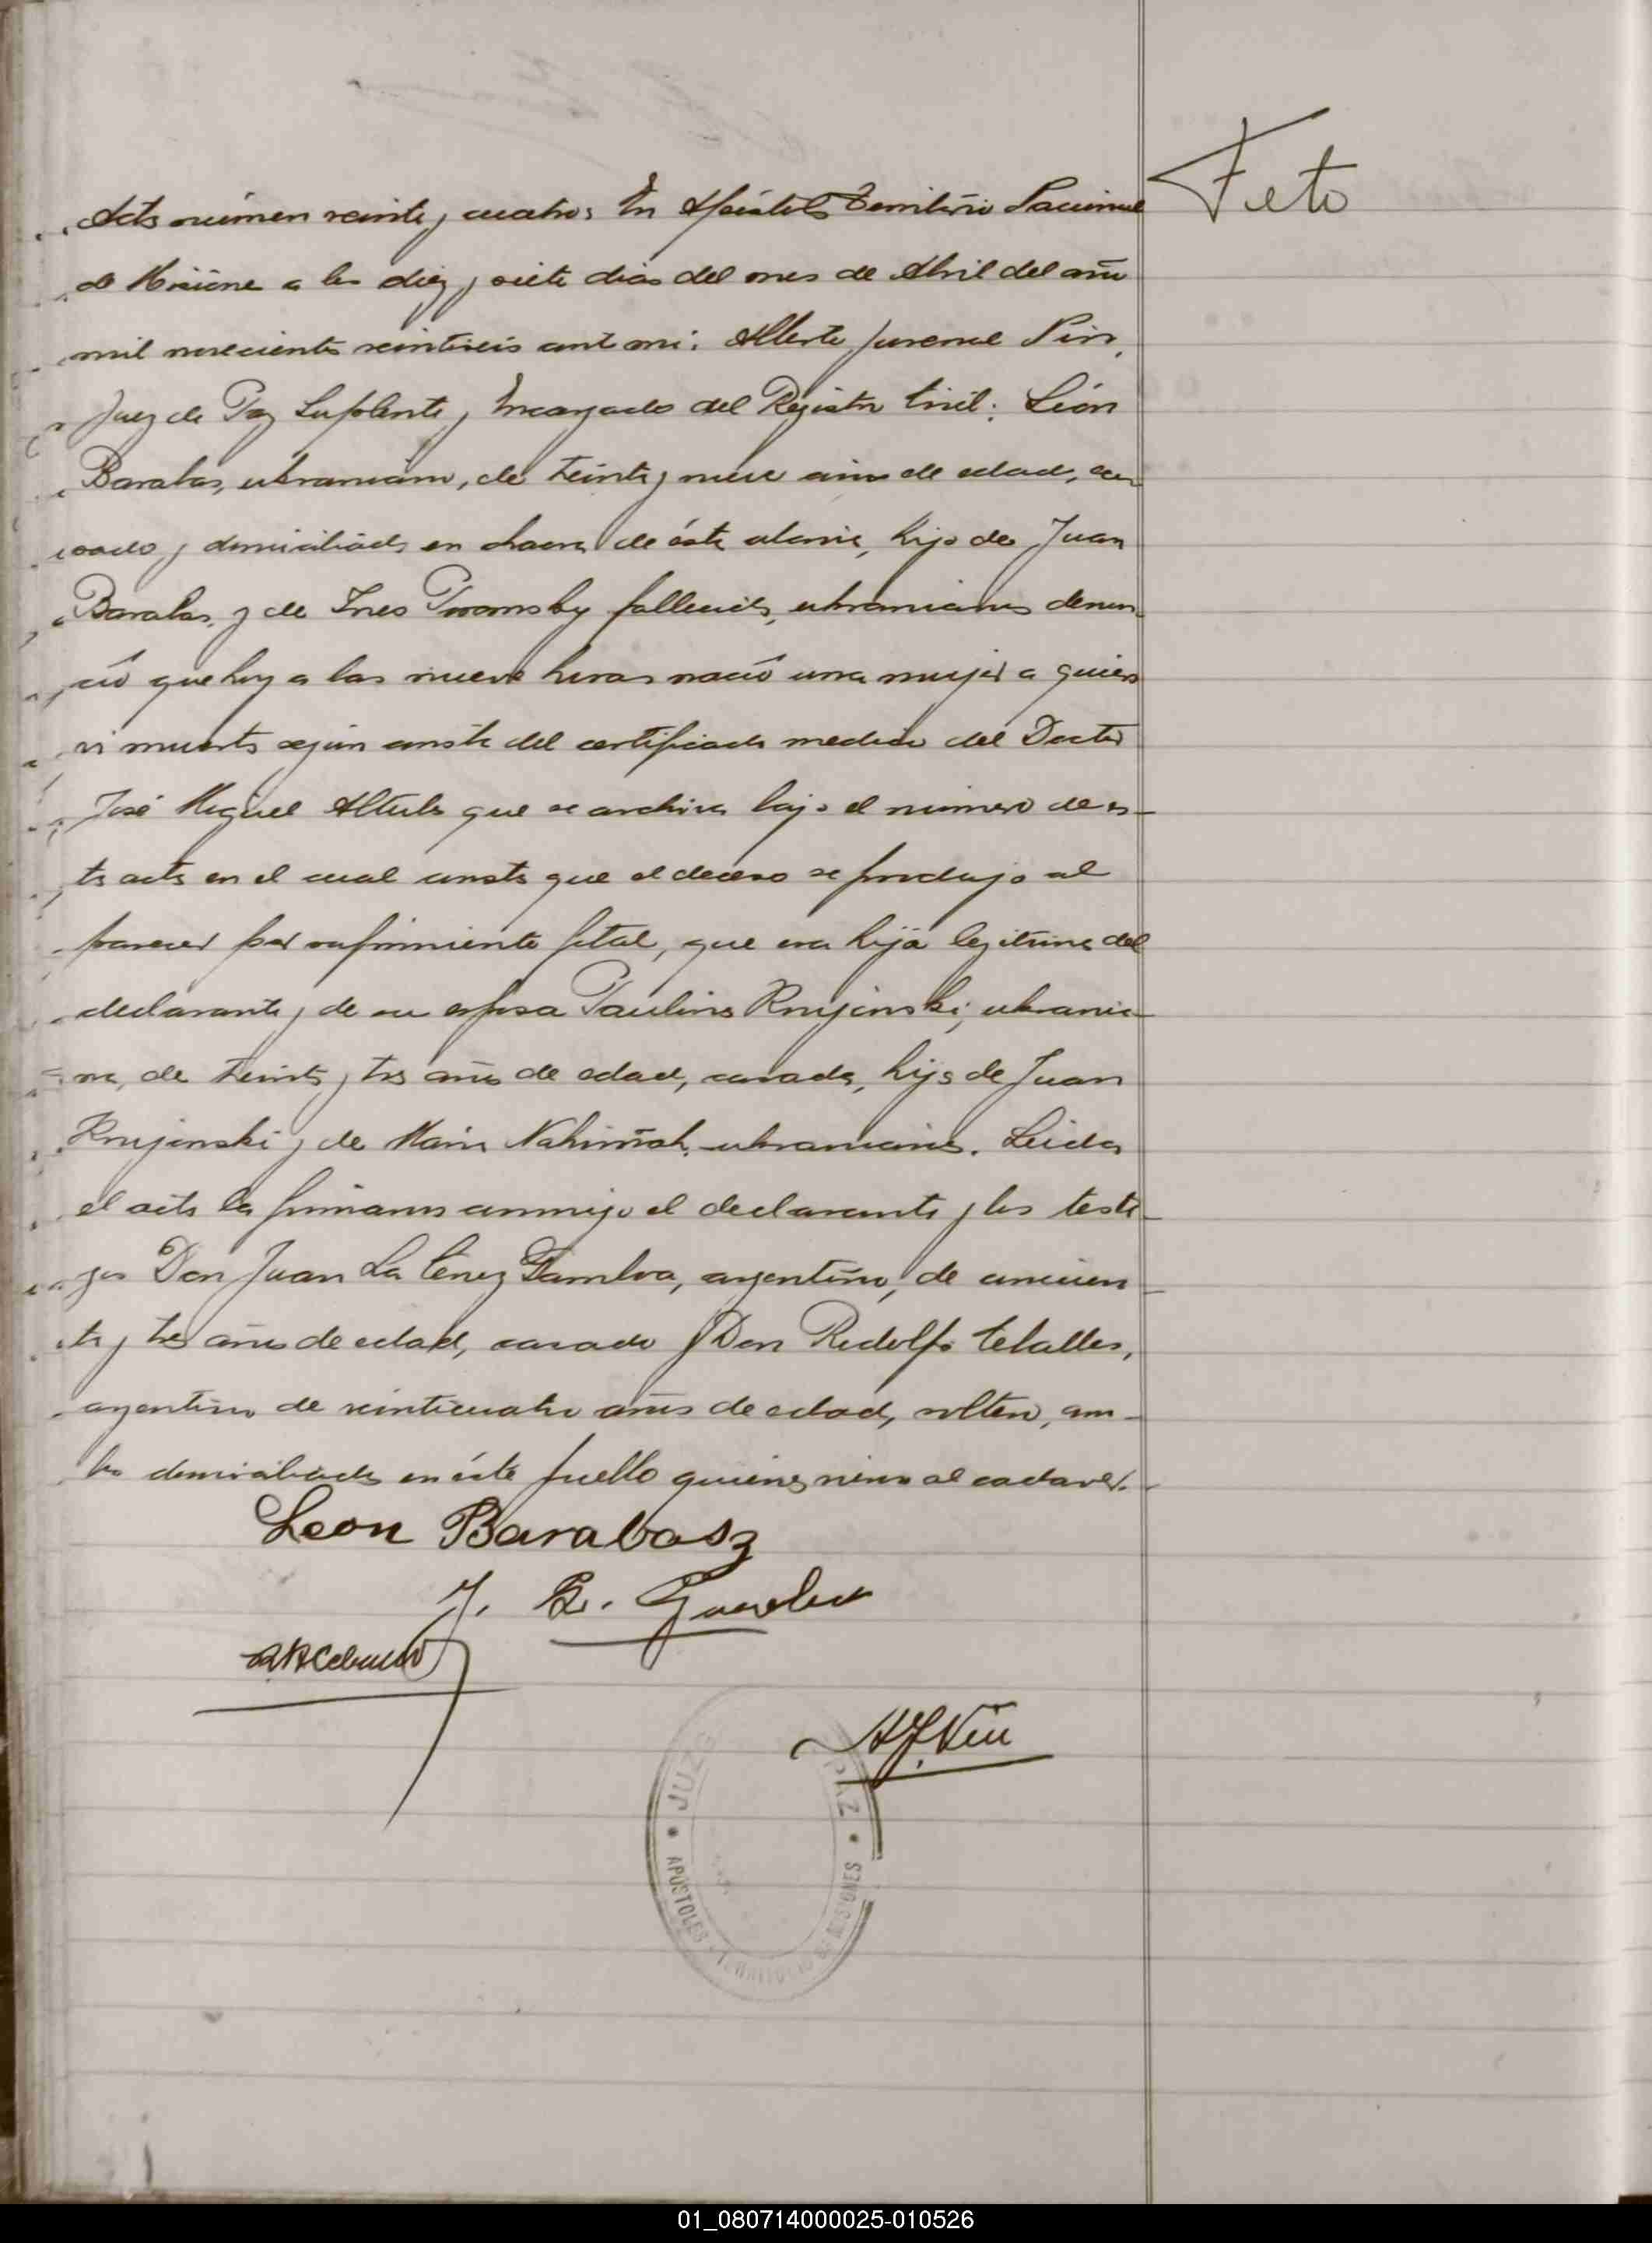 Feto
Acta número veinte y cuatro: En Apóstoles Territorio Nacional
de Misiones a los diez y siete dias del mes de Abril del año
mil novecientos veintiseis ante mi: Alberto Juvenal Niz,
Juez de Paz Suplente y Encargado del Registro Civil: León
Barabas, ukraniano, de treinta y nueve años de edad, ca-
sado y domiciliado en chacra de ésta colonia, hijo de Juan
Barabas, y de Ines fallecidos, ukranianos denun-
ció que hoy a las nueve horas nació una mujer a quien
vi muerta según consta del certificado medico del Doctor
José Miguel que se archiva bajo el número de es-
ta acta en el cual consta que el deceso se produjo al
parecer por sufrimiento fetal, que era hija legítima del
declarante y de su esposa Paulina Krujenski, ukrania-
na, de treinta y tres años de edad, casada, hija de Juan
Krujenski y de Maria ukranianos. Leida
el acta la firmaron conmigo el declarante y los testi-
gos Don Juan La Cruz argentino, de cincuen
ta y tres años de edad, casado y Don Rodolfo
argentino de veinticuatro años de edad, soltero, am-
bos domiciliados en éste pueblo quienes vieron al cadaver.
Leon Barabasz
J.
JUZG PAZ
APOSTOLES - TERRITORIO DE MISIONES
01_080714000025-010526